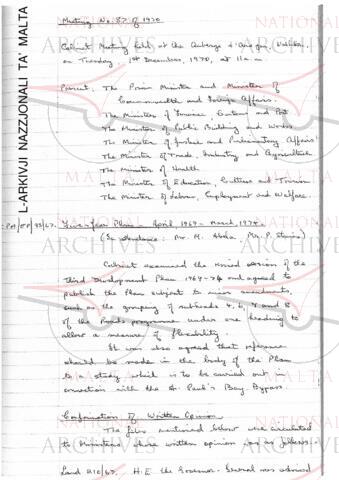 L-ARKIVJI NAZZJONALI TA' MALTA
Meeting No. 37 of 1970
Cabinet Meeting held at the Auberge d'Aragon, Valletta,
on Tuesday, 1st December, 1970, at 11 a.m.
Present: The Prime Minister and Minister of
Commonwealth and Foreign Affairs.
The Minister of Finance, Customs and Port
The Minister of Public Building and Works
The Minister of Justice and Parliamentary Affairs
The Minister of Trade, Industry and Agriculture
The Minister of Health
The Minister of Education, Culture and Tourism
The Minister of Labour, Employment and Welfare
Five-Year Plan - April, 1969 - March, 1974.
(In attendance: Mr. M. Abela Mr. P.
Cabinet examined the revised version of the
Third Development Plan 1969-74 and agreed to
publish the Plan subject to minor amendments,
such as the grouping of subheads
of the Roads programme under one heading to
allow a measure of flexibility.
It was also agreed that reference
should be made in the body of the Plan
to a study which is to be carried out in
connection with the St. Paul's Bay Bypass.
Confirmation of Written Opinion
The files mentioned below were circulated
to Ministers whose written opinion was as follows:-
Land 210/67. H.E. the Governor-General was advised
NATIONAL
ARCHIVES
MALTA